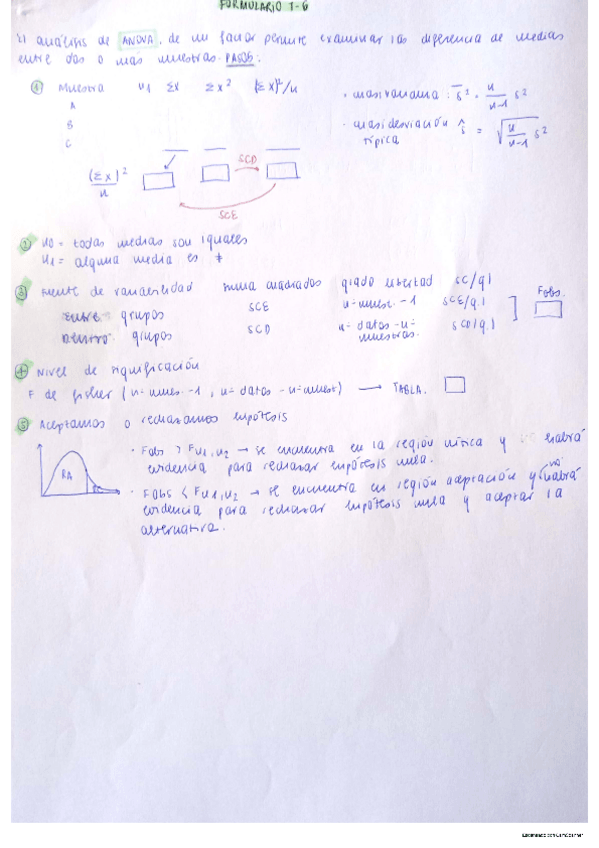 FORMULARIO 1-6
El análisis de ANOVA, de un factor permite examinar las diferencia de medias
entre dos o más muestras. PASOS.
① Muestra n1 Σx Σx² (Σx)²/n
A
B
C
· cuasivarianza: ŝ² = n/n-1 s²
· cuasidesviación típica ŝ = √(n/n-1 s²)
(Σx)²/n
SCD
SCE
② H0 = todas medias son iguales
H1 = alguna media es ≠
③ Fuente de variabilidad suma cuadrados grado libertad SC/g.l Fobs.
ENTRE grupos SCE nº muest. -1 SCE/g.l
DENTRO grupos SCD nº datos - nº muestras. SCD/g.l
④ Nivel de significación
F de fisher (nº mues -1, nº datos - nº muest) → TABLA.
⑤ Aceptamos o rechazamos hipótesis
RA
· Fobs > Fn1,n2 → se encuentra en la región crítica y habrá
evidencia para rechazar hipótesis nula.
· Fobs < Fn1,n2 → se encuentra en región aceptación y no habrá
evidencia para rechazar hipótesis nula y aceptar la
alternativa.
Escaneado con CamScanner